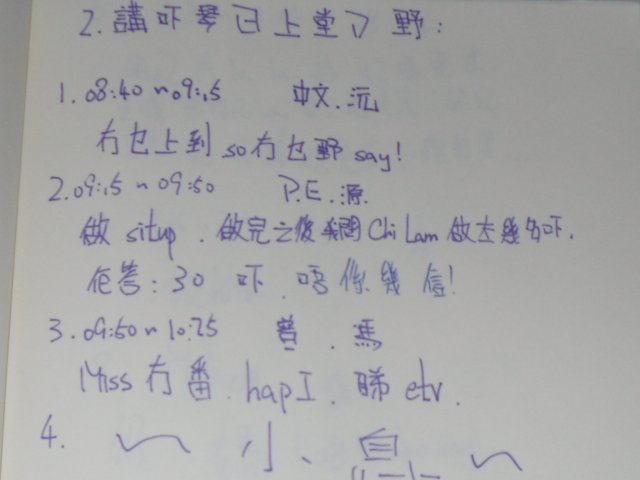 2. 講吓琴日上堂ㄋ野:
1. 08:40~09:15 中文.沅
冇乜上到 so冇乜野 say!
2. 09:15~09:50 P.E.源
做 situp. 做完之後 問 Chi Lam 做左幾多吓.
佢答: 30 吓. 唔係幾信!
3. 09:50~10:25 普.馮
Miss 冇番. hap I. 睇 etv.
4. ~小息~